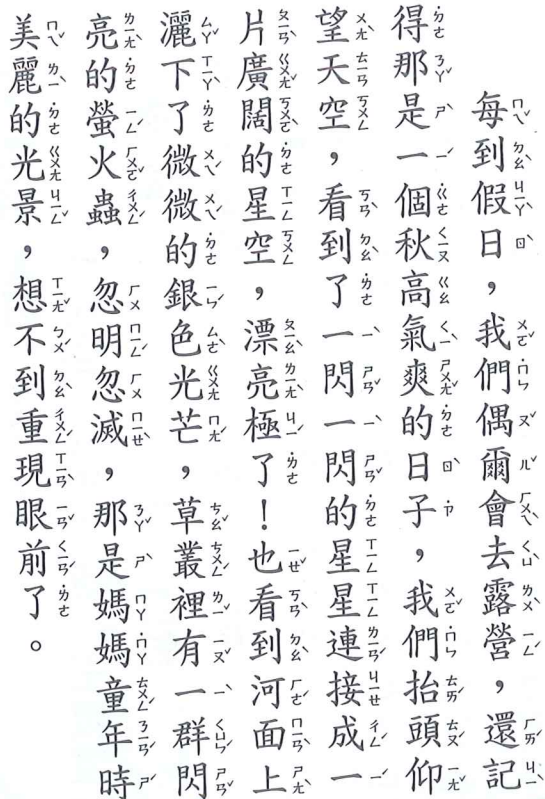 每到假日，我們偶爾會去露營，還記
得那是一個秋高氣爽的日子，我們抬頭仰
望天空，看到了一閃一閃的星星連接成一
片廣闊的星空，漂亮極了！也看到河面上
灑下了微微的銀色光芒，草叢裡有一群閃
亮的螢火蟲，忽明忽滅，那是媽媽童年時
美麗的光景，想不到重現眼前了。